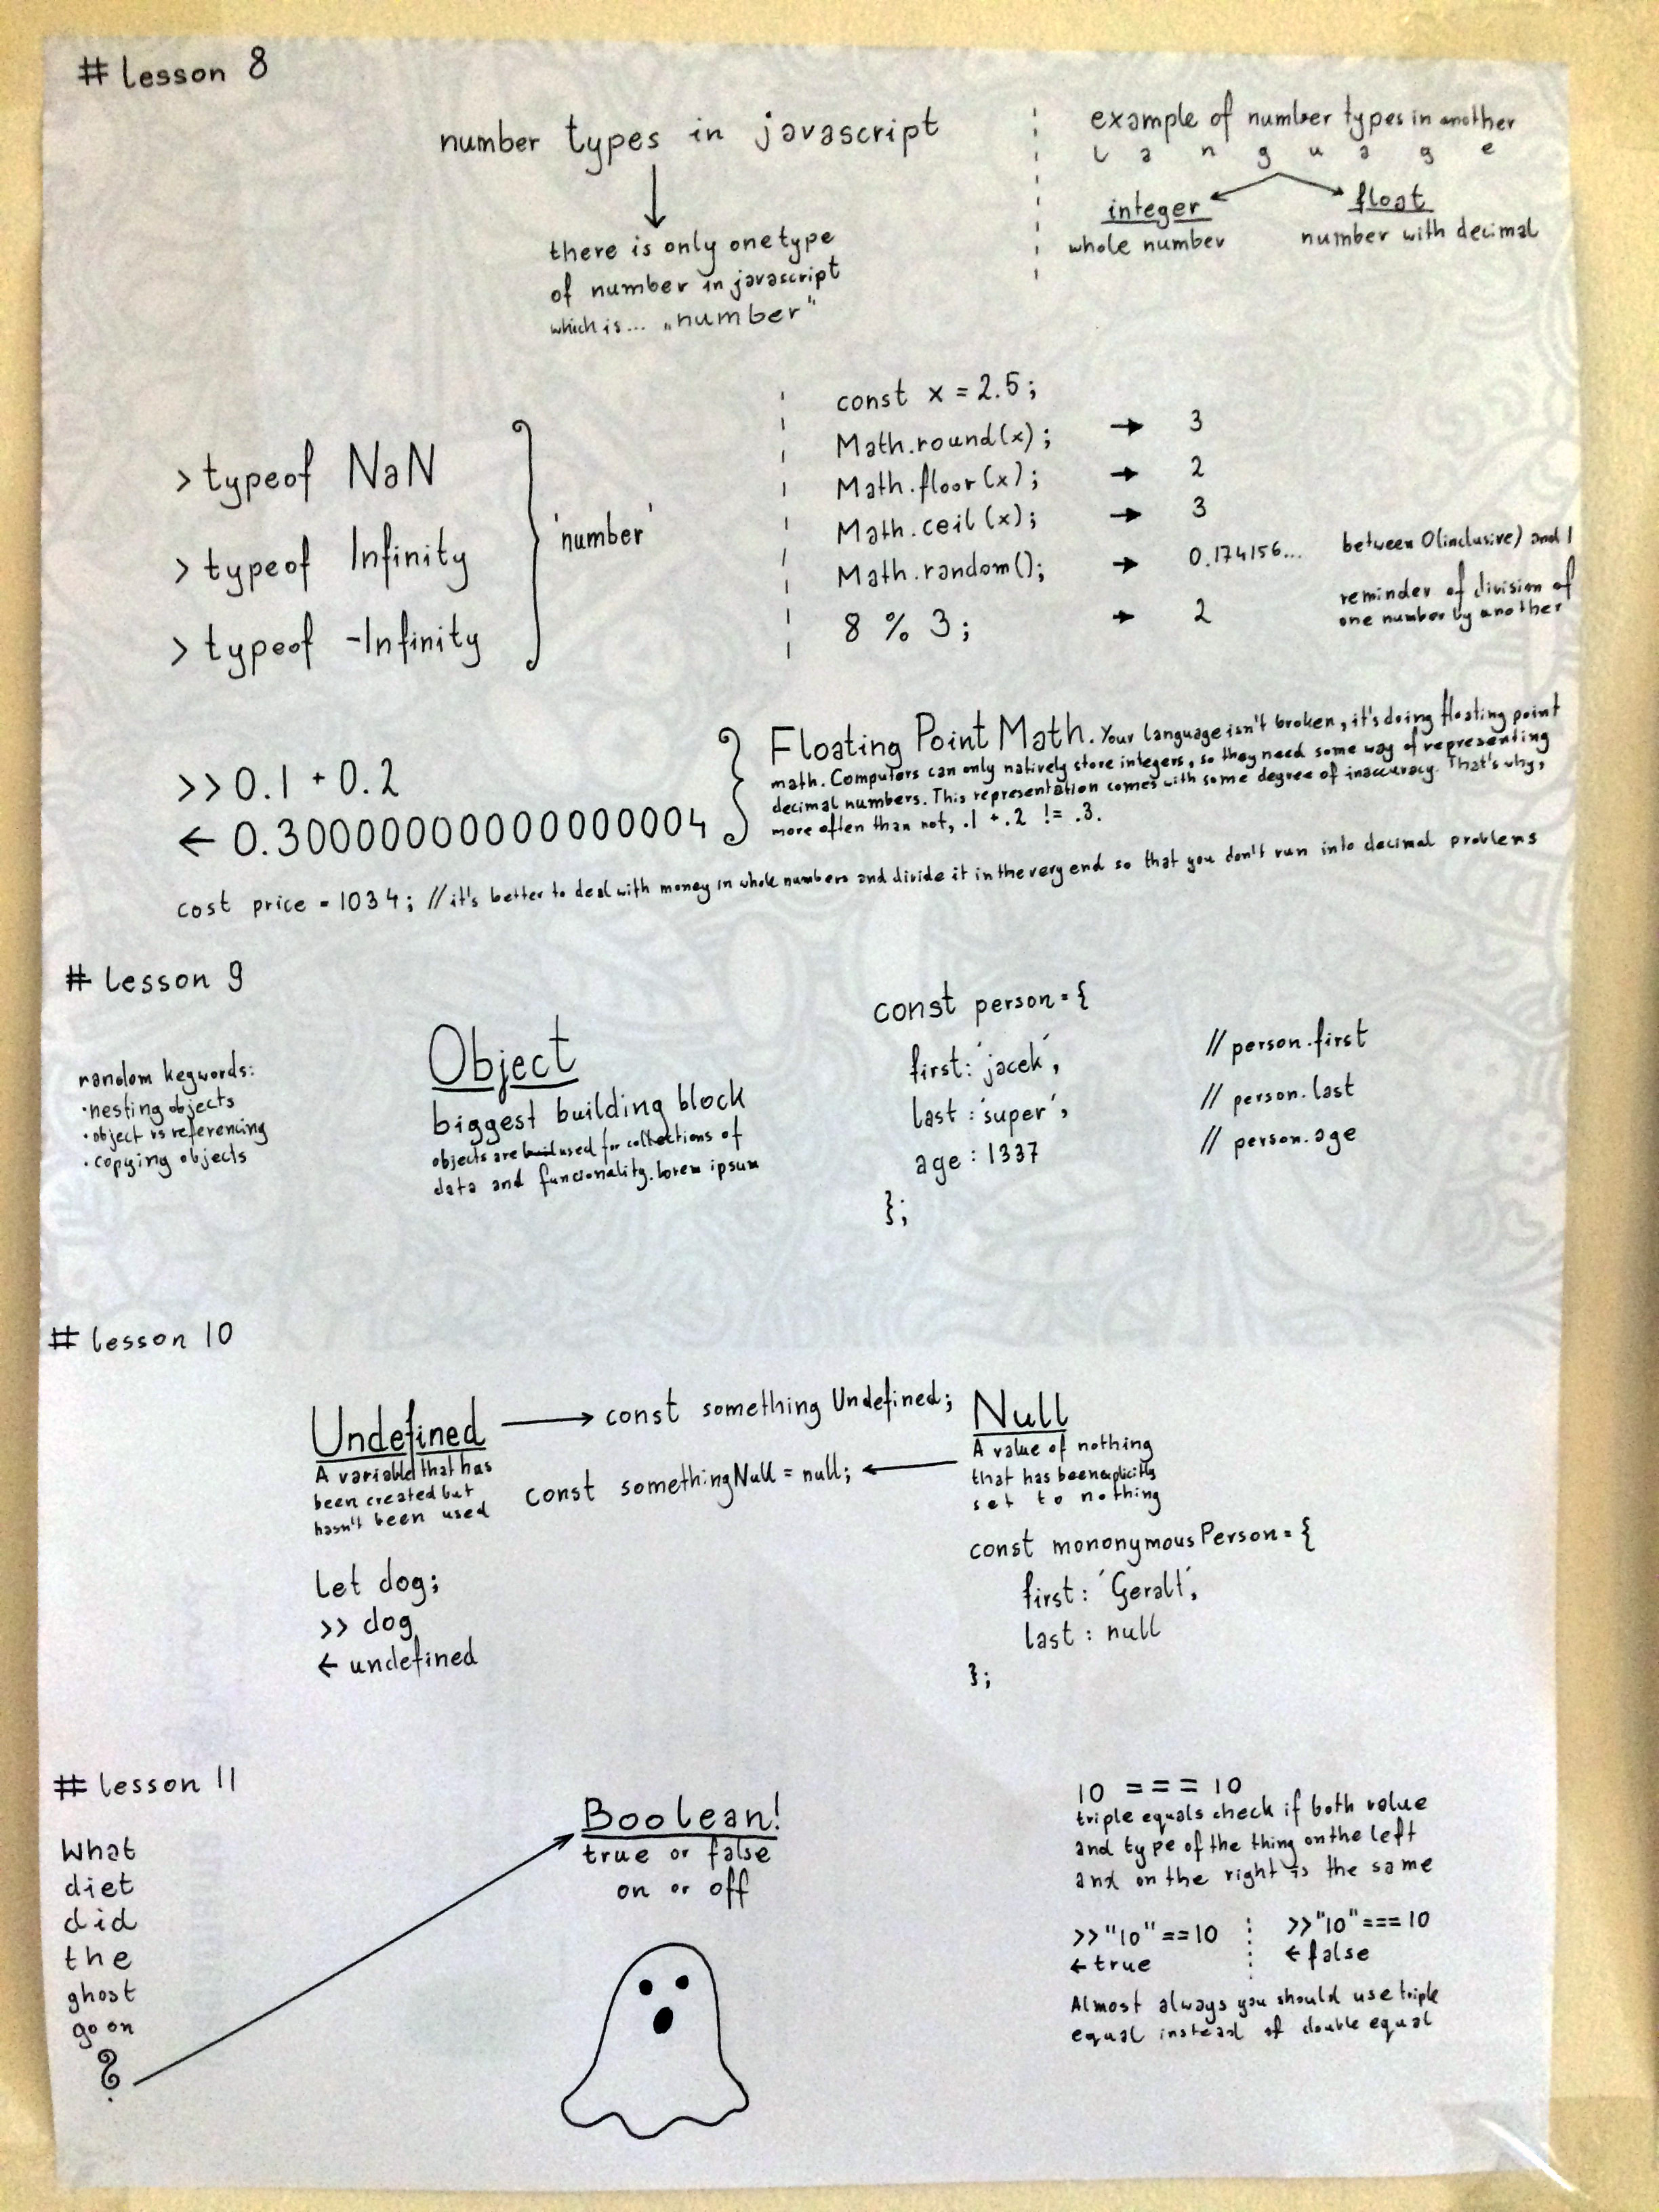 # lesson 8
number types in javascript
there is only one type
of number in javascript
which is... „number"
example of number types in another
l a n g u a g e
integer
whole number
float
number with decimal
> typeof NaN
> typeof Infinity
> typeof -Infinity
'number'
const x = 2.5;
Math.round(x); → 3
Math.floor(x); → 2
Math.ceil(x); → 3
Math.random(); → 0.174156... between 0(inclusive) and 1
8 % 3; → 2 reminder of division of
one number by another
>> 0.1 + 0.2
← 0.30000000000000004
Floating Point Math. Your language isn't broken, it's doing floating point
math. Computers can only natively store integers, so they need some way of representing
decimal numbers. This representation comes with some degree of inaccuracy. That's why,
more often than not, .1 + .2 != .3.
cost price = 1034; // it's better to deal with money in whole numbers and divide it in the very end so that you don't run into decimal problems
# lesson 9
random keywords:
• nesting objects
• object vs referencing
• copying objects
Object
biggest building block
objects are used for collections of
data and funcionality. lorem ipsum
const person = {
first: 'jacek', // person.first
last: 'super', // person.last
age: 1337 // person.age
};
# lesson 10
Undefined → const something Undefined;
A variable that has
been created but
hasn't been used
Null
A value of nothing
that has been explicitly
set to nothing
const somethingNull = null; ←
let dog;
>> dog
← undefined
const mononymousPerson = {
first: 'Geralt',
last: null
};
# lesson 11
What
diet
did
the
ghost
go on
?
Boolean!
true or false
on or off
10 === 10
triple equals check if both value
and type of the thing on the left
and on the right is the same
>> "10" == 10
← true
>> "10" === 10
← false
Almost always you should use triple
equal instead of double equal